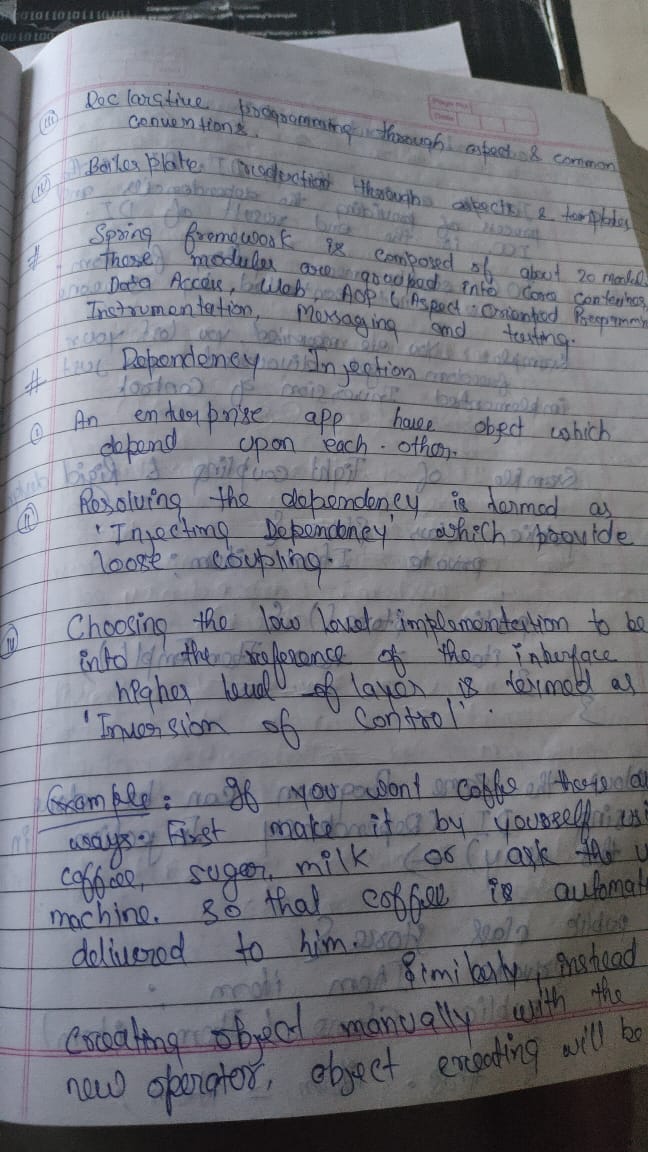 (iii) Declarative programming through aspect & common
conventions.
(iv) Boilerplate reduction through aspects & templates
# Spring framework is composed of about 20 modul
Those modules are grouped into Core Container,
Data Access, Web, AOP (Aspect Oriented Programm
Instrumentation, Messaging and testing.
# Dependency Injection
(i) An enterprise app have object which
depend upon each other.
(ii) Resolving the dependency is termed as
'Injecting Dependency' which provide
loose coupling.
(iv) Choosing the low level implementation to be
into the reference of the interface
higher level of layer is termed as
'Inversion of Control'.
Example: If you want coffe there a
ways. First make it by yourself usi
coffee, suger, milk or ask the
machine. So that coffee is automat
delivered to him.
Similarly, instead
creating object manually with the
new operator, object creating will be